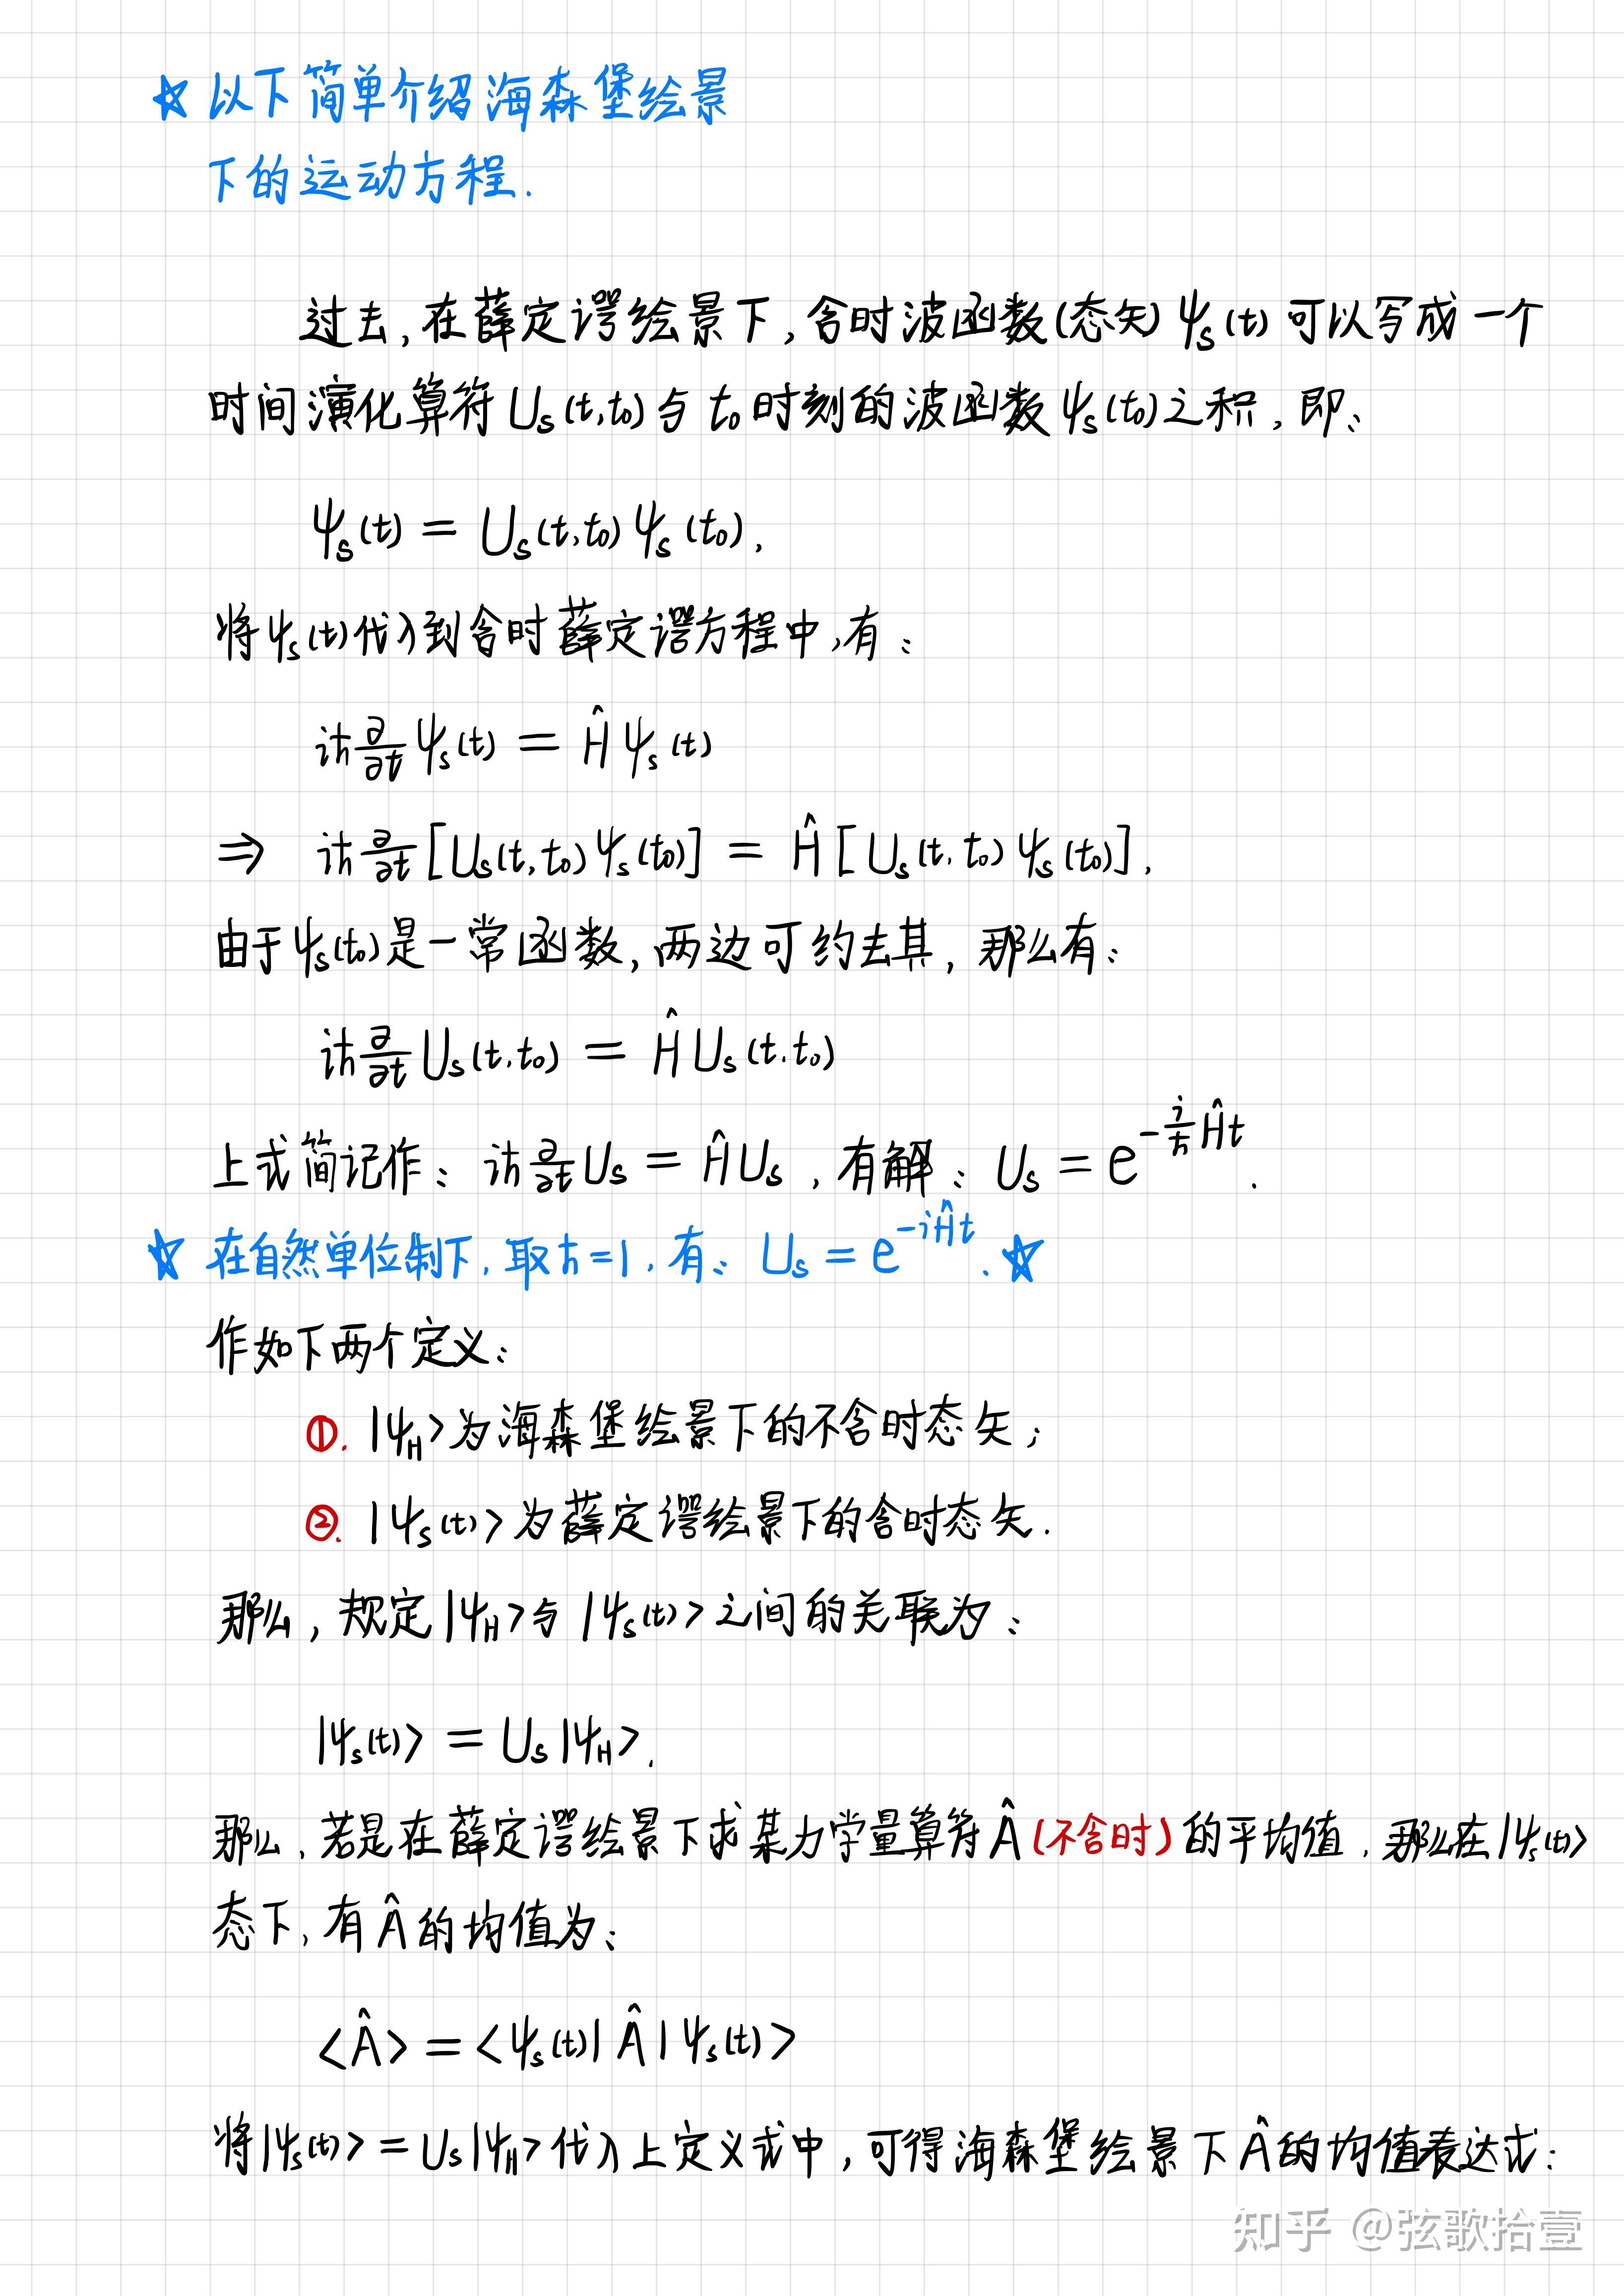 ☆ 以下简单介绍海森堡绘景
下的运动方程.
过去,在薛定谔绘景下,含时波函数(态矢) ψ_s(t) 可以写成一个
时间演化算符 U_s(t,t₀) 与 t₀ 时刻的波函数 ψ_s(t₀) 之积,即:
ψ_s(t) = U_s(t,t₀) ψ_s(t₀).
将 ψ_s(t) 代入到含时薛定谔方程中,有:
iħ ∂/∂t ψ_s(t) = Ĥ ψ_s(t)
⇒ iħ ∂/∂t [U_s(t,t₀) ψ_s(t₀)] = Ĥ [U_s(t,t₀) ψ_s(t₀)].
由于 ψ_s(t₀) 是一常函数,两边可约去其,那么有:
iħ ∂/∂t U_s(t,t₀) = Ĥ U_s(t,t₀)
上式简记作: iħ ∂/∂t U_s = Ĥ U_s ,有解: U_s = e^{-i/ħ Ĥt}.
☆ 在自然单位制下,取 ħ=1,有: U_s = e^{-iĤt}. ☆
作如下两个定义:
①. |ψ_H> 为海森堡绘景下的不含时态矢;
②. |ψ_s(t)> 为薛定谔绘景下的含时态矢.
那么,规定 |ψ_H> 与 |ψ_s(t)> 之间的关联为:
|ψ_s(t)> = U_s |ψ_H>.
那么,若是在薛定谔绘景下求某力学量算符 Â (不含时) 的平均值,那么在 |ψ_s(t)>
态下,有 Â 的均值为:
<Â> = <ψ_s(t)| Â |ψ_s(t)>
将 |ψ_s(t)> = U_s |ψ_H> 代入上定义式中,可得海森堡绘景下 Â 的均值表达式:
知乎 @弦歌拾壹